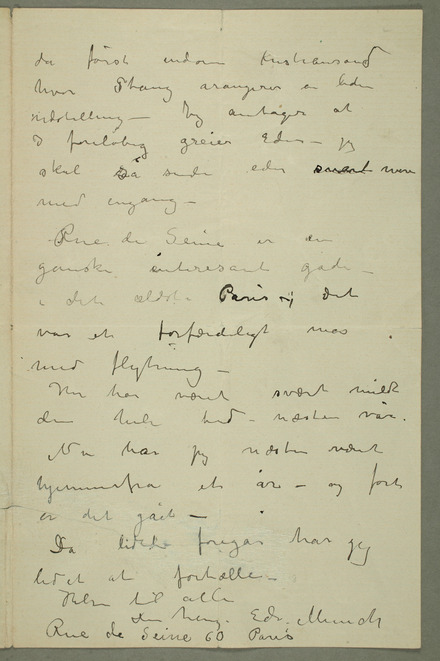 da først indom Kristiansand
hvor Thang arangerer en liden
udstilling – Jeg antager at
I foreløbig greier Eder – jeg
skal så sende eder mere
med engang –
Rue de Seine er en
ganske interesant gade –
i det ældste Paris – det
var et forfærdeligt mas
med flytning –
Her har været svært mildt
den hele tid – næsten vår.
Nu har jeg næsten været
hjemmefra et år – og fort
er det gået –
Da lidet foregår har jeg
lidet at fortælle –
Hilsen til alle
Edv. Munch
Rue de Seine 60 Paris